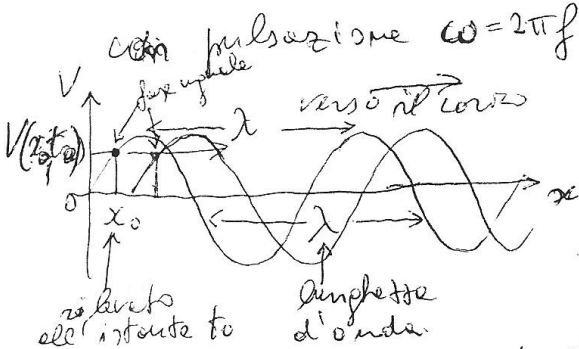 con pulsazione ω = 2πf
fase uguale
V
verso il carico
λ
V(x₀,t₀)
0
x₀
λ
x
rilevato
all'istante t₀
lunghezza
d'onda